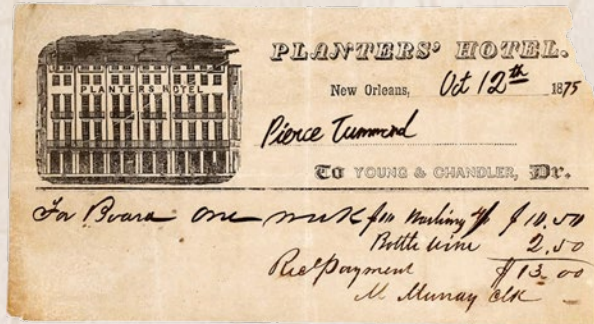 PLANTERS' HOTEL.
PLANTERS HOTEL
New Orleans, Oct 12th 1875
Pierce
To YOUNG & CHANDLER, Dr.
For Board one week $10.50
Bottle wine 2.50
Rec'd payment $13.00
M Murray Clk